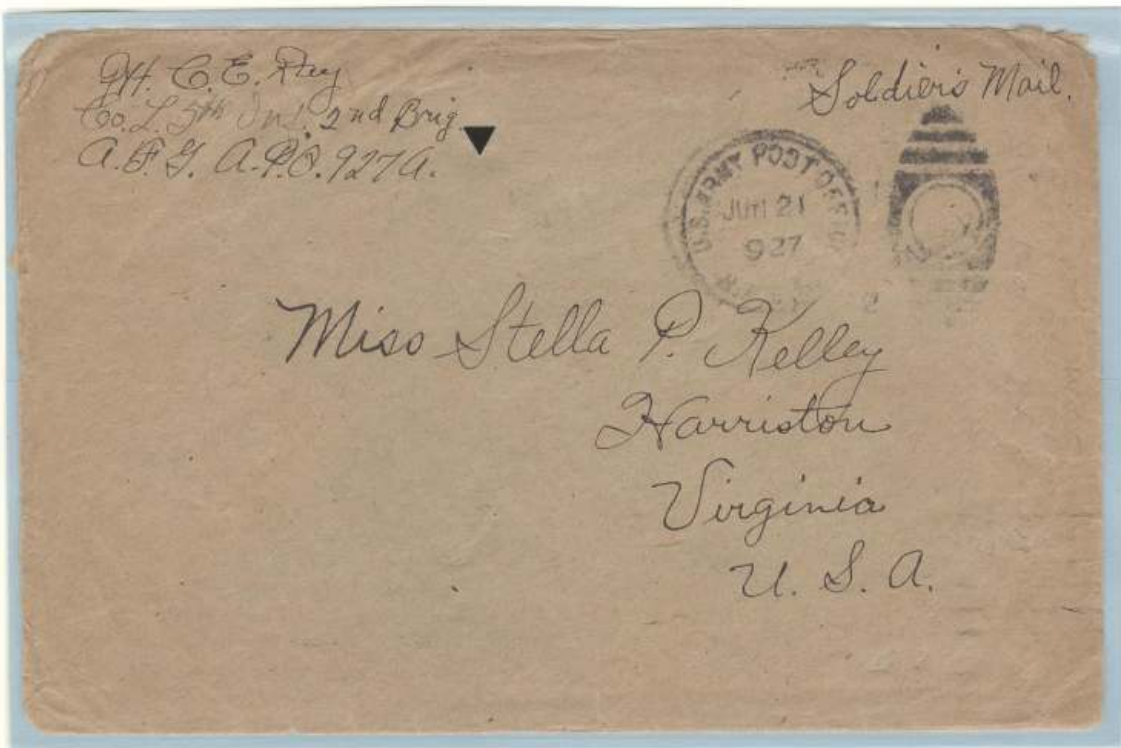 C. E. Ray
Co. L. 5th Inf. 2nd Brig.
A. F. G. A.P.O. 927A.
Soldier's Mail.
U.S. ARMY POST OFFICE
JUN 21
927
Miss Stella P. Kelley
Harriston
Virginia
U. S. A.